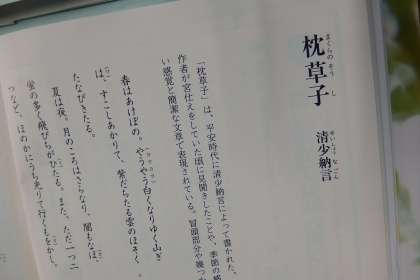 枕草子
清少納言
「枕草子」は、平安時代に清少納言によって書かれた。
作者が宮仕えをしていた頃に見聞きしたことや、季節の
い感覚と簡潔な文章で表現されている。冒頭部分や幾つ
春はあけぼの。やうやう白くなりゆく山ぎ
は、すこしあかりて、紫だちたる雲のほそく
たなびきたる。
夏は夜。月のころはさらなり、闇もなほ、
蛍の多く飛びちがひたる。また、ただ一つ二
つなど、ほのかにうち光りて行くもをかし。